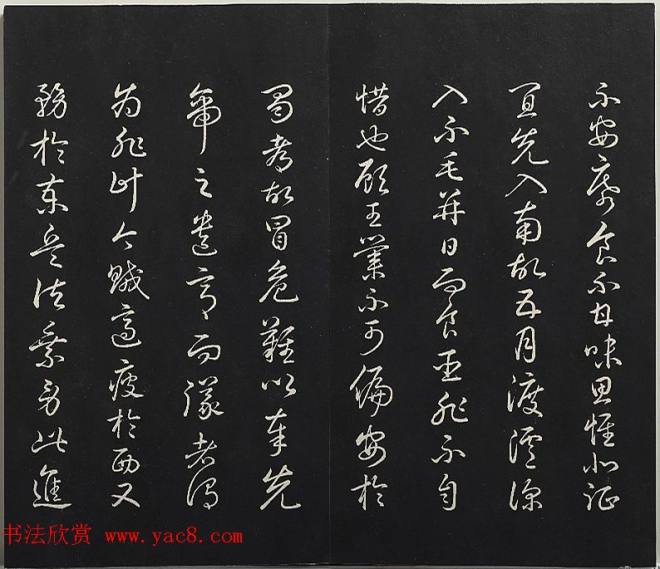 不安席食不甘味思惟北征
宜先入南故五月渡瀘深
入不毛并日而食臣非不自
惜也顧王業不可偏安於
蜀都故冒危難以奉先
帝之遺意而議者謂
為非計今賊適疲於西又
務於東兵法乘勞此進
书法欣赏 www.yac8.com